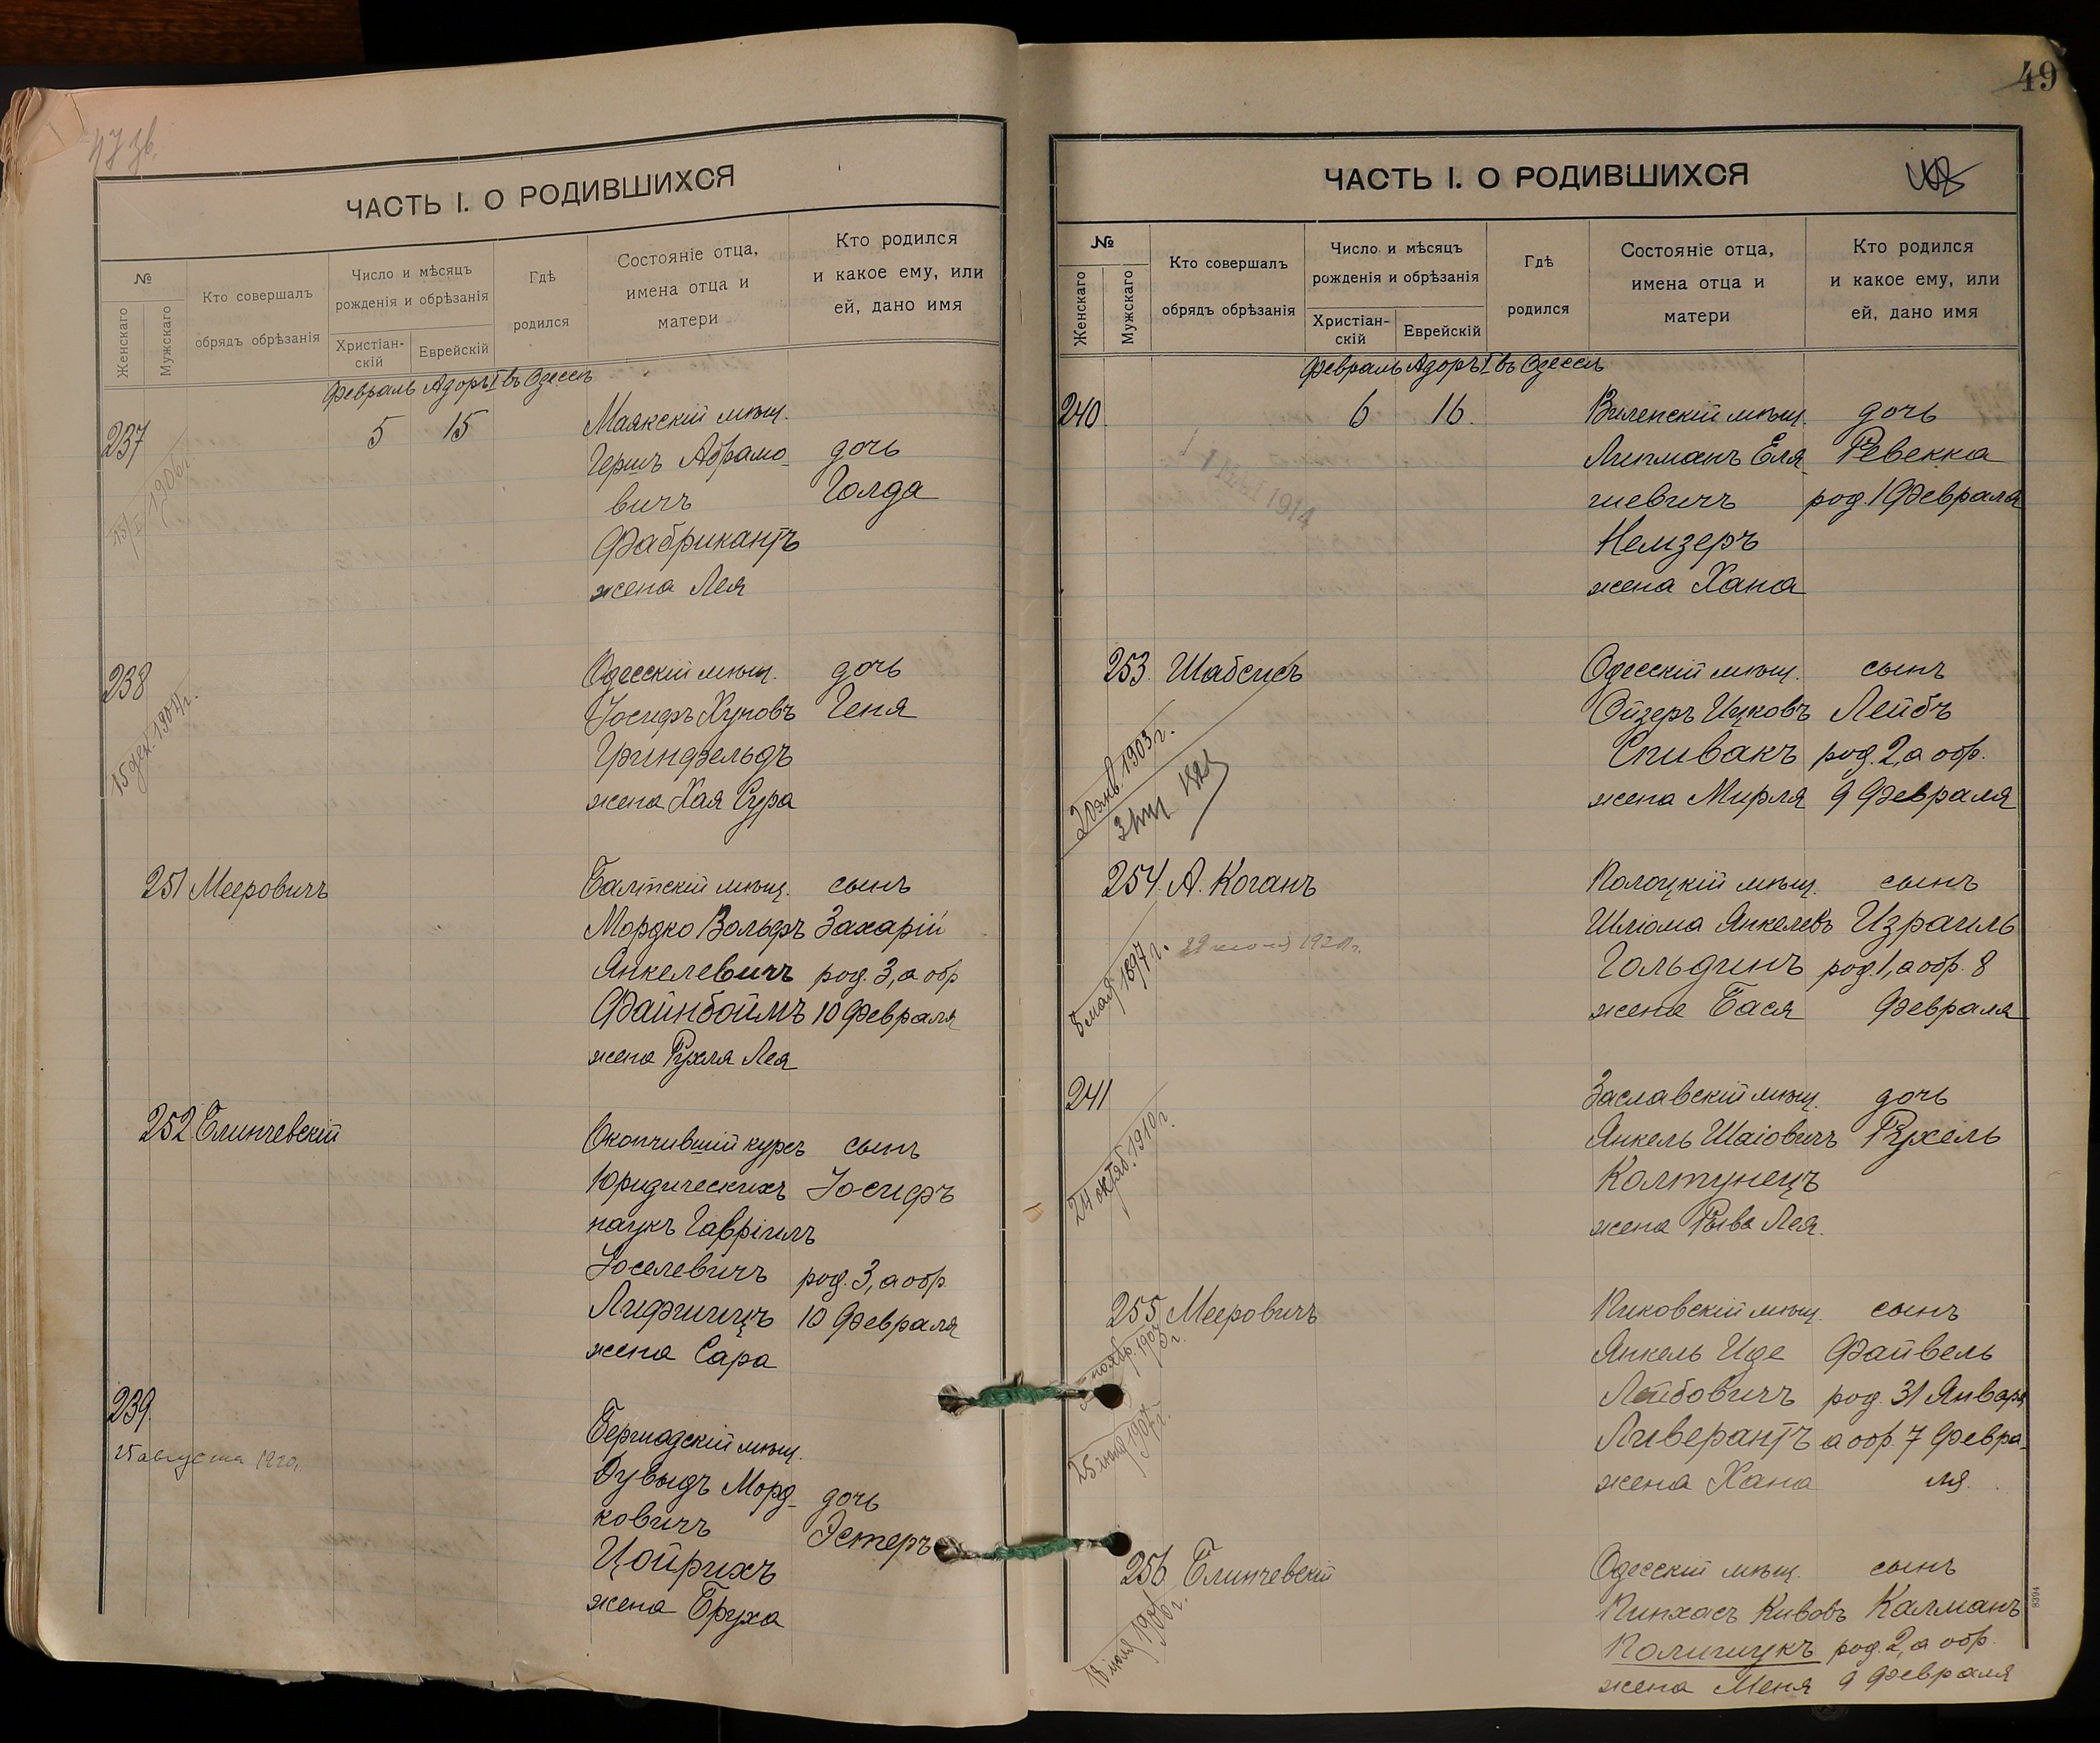 ЧАСТЬ I. О РОДИВШИХСЯ
№
Женскаго
Мужскаго
Кто совершалъ
обрядъ обрѣзанія
Число и мѣсяцъ
рожденія и обрѣзанія
Христіан-
скій
Еврейскій
Гдѣ
родился
Состояніе отца,
имена отца и
матери
Кто родился
и какое ему, или
ей, дано имя
Февраль Адоръ I въ Одессѣ
237 5 15 Маякскій мѣщ.
Гершъ Абрамо- дочь
вичъ Голда
Фабрикантъ
жена Лея
238 Одесскій мѣщ. дочь
15 дек. 1904 г.
Іосифъ Хуновъ Геня
Гринфельдъ
жена Хая Сура
251 Мееровичъ Балтскій мѣщ. сынъ
Мордко Вольфъ Захарій
Янкелевичъ род. 3, а обр
Файнбоймъ 10 Февраля
жена Рухля Лея
252 Блинчевскій Окончившій курсъ сынъ
Юридическихъ Іосифъ
наукъ Гавріилъ
Іоселевичъ род. 3, а обр.
Лифшицъ 10 Февраля
жена Сара
239. Бершадскій мѣщ.
25 августа 1920.
Дувыдъ Морд- дочь
ковичъ Эстеръ
Цойрихъ
жена Бруха
49
ЧАСТЬ I. О РОДИВШИХСЯ
№
Женскаго
Мужскаго
Кто совершалъ
обрядъ обрѣзанія
Число и мѣсяцъ
рожденія и обрѣзанія
Христіан-
скій
Еврейскій
Гдѣ
родился
Состояніе отца,
имена отца и
матери
Кто родился
и какое ему, или
ей, дано имя
Февраль Адоръ I въ Одессѣ
240. 6 16. Виленскій мѣщ. дочь
Липманъ Еля- Ревекка
шевичъ род. 1 Февраля
Немзеръ
жена Хана
1914
253. Шабсисъ Одесскій мѣщ. сынъ
Ойзеръ Ицковъ Лейбъ
Спивакъ род. 2, а обр.
жена Мирля 9 Февраля
20 янв. 1903 г.
254. А. Коганъ Полоцкій мѣщ. сынъ
Шліома Янкелевъ Израиль
Гольдинъ род. 1, а обр. 8
жена Бася Февраля
8 мая 1897 г.
241 Заславскій мѣщ. дочь
Янкель Шаіовичъ Рухель
Колтунецъ
жена Рыва Лея.
24 октяб. 1910 г.
255 Мееровичъ Пиковскій мѣщ. сынъ
Янкель Иде Файвель
Лейбовичъ род. 31 Января
Ливерантъ а обр. 7 Февра-
жена Хана ля.
256 Блинчевскій Одесскій мѣщ. сынъ
Пинхасъ Кивовъ Калманъ
Полищукъ род. 2, а обр.
жена Меня 9 Февраля
8394